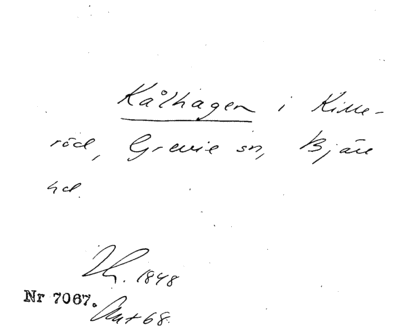 Kålhagen i Kille-
röd, Grevie sn, Bjäre
hd.
1848
Nr 7067.
68.